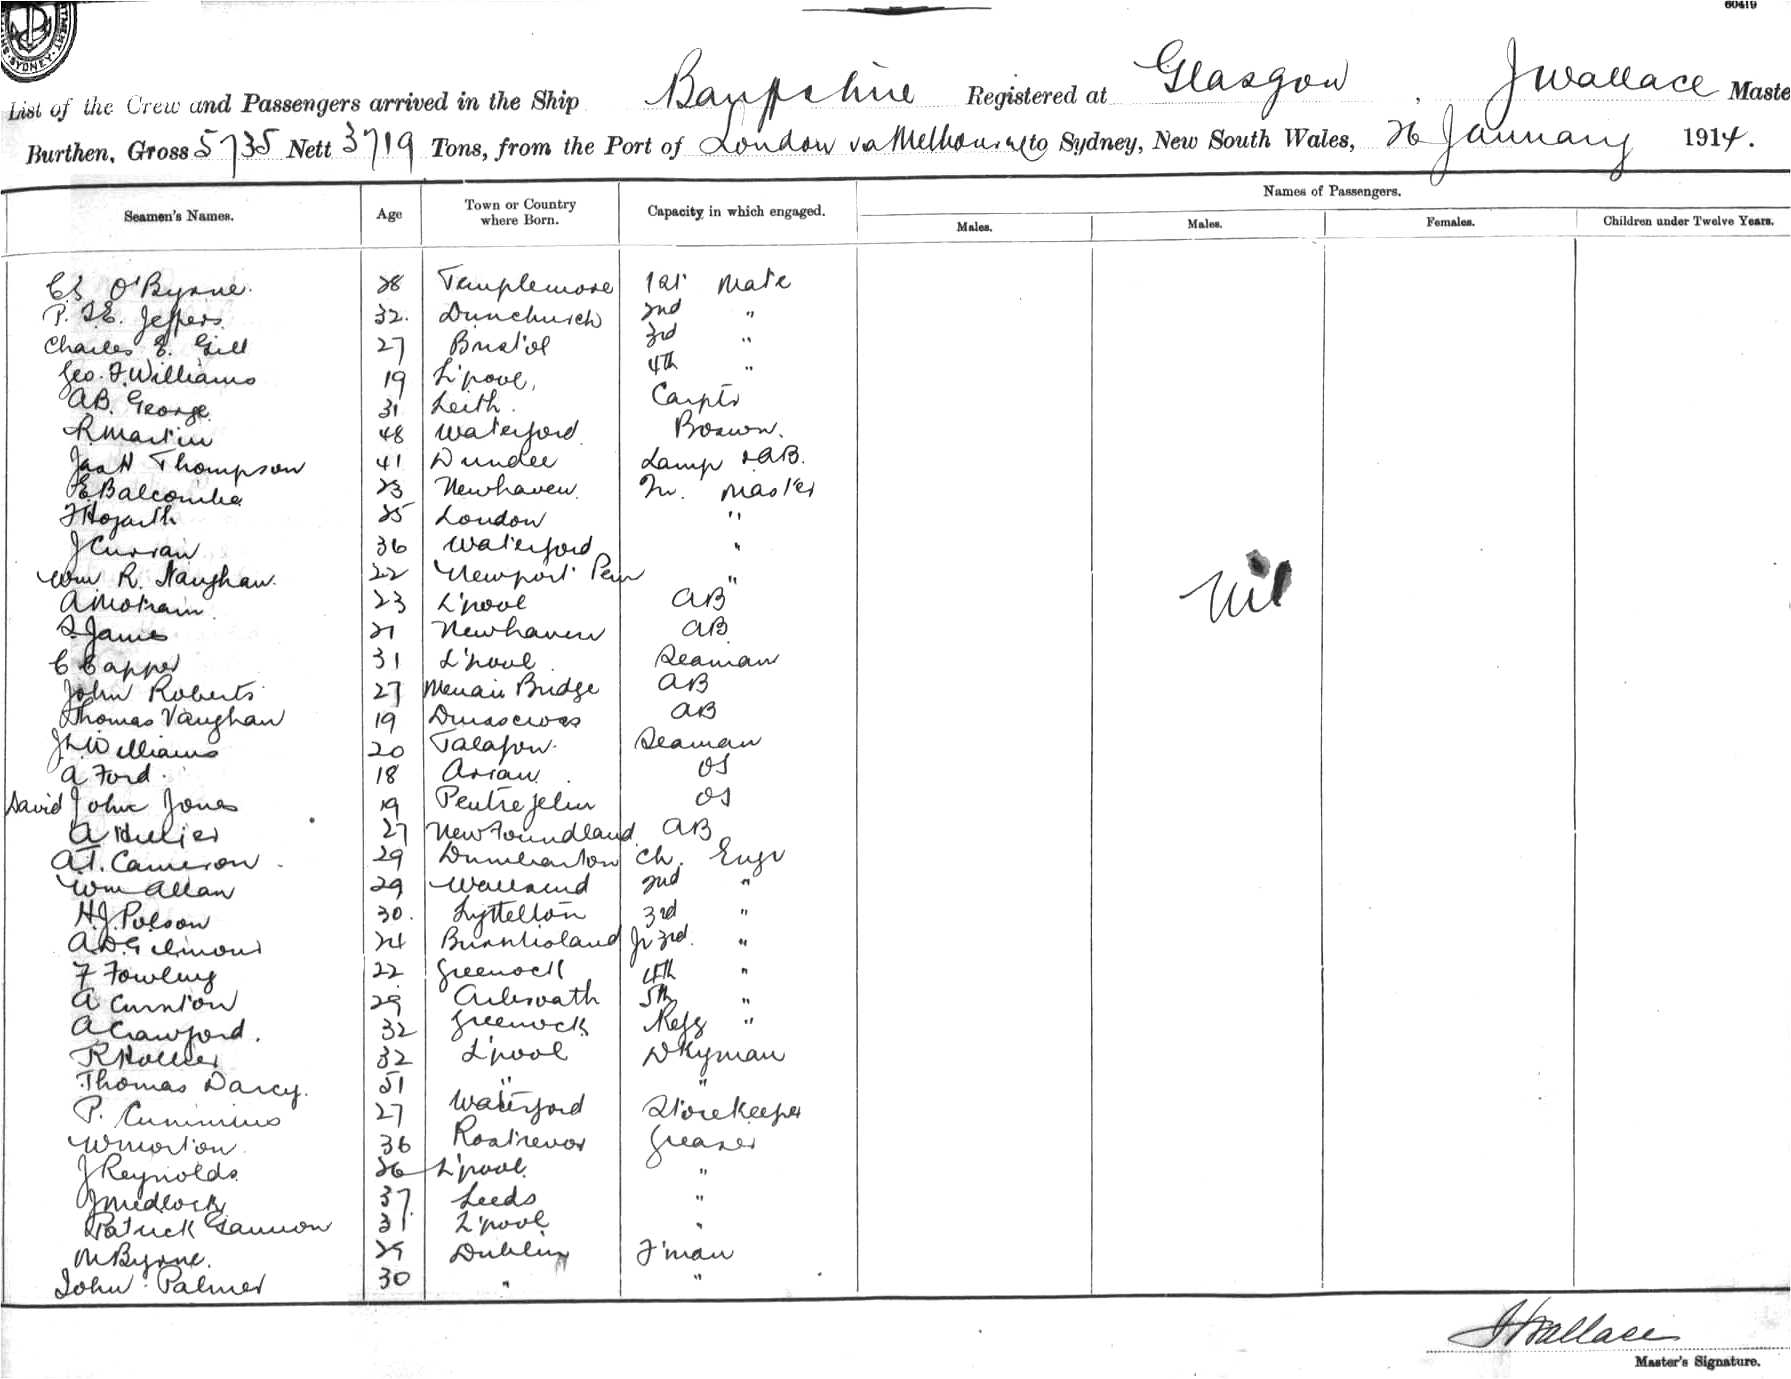 60419
SYDNEY
List of the Crew and Passengers arrived in the Ship Banffshire Registered at Glasgow, J Wallace Maste
Burthen, Gross 5735 Nett 3719 Tons, from the Port of London via Melbourne to Sydney, New South Wales, 26 January 1914.
Names of Passengers.
Seamen's Names. Age Town or Country where Born. Capacity in which engaged. Males. Males. Females. Children under Twelve Years.
O'Byrne. 28 Templemore 1st Mate
P. Jeffers. 32. Dunchurch 2nd "
Charles E. Gill 27 Bristol 3rd "
Geo. F. Williams 19 L'pool, 4th "
A.B. George 31 Leith. Carptr
R. Martin 48 Waterford Boswn.
Jas H Thompson 41 Dundee Lamp & AB.
E Balcombe 23 Newhaven. Qr. Master
F Hogarth 25 London "
J Curran 36 Waterford "
Wm R. Naughan. 22 Newport Pem "
A Motram 23 L'pool AB
S. James 21 Newhaven AB
C Capper 31 L'pool Seaman
John Roberts 27 Menai Bridge AB
Thomas Vaughan 19 AB
J L Williams 20 Seaman
A Ford. 18 OS
David John Jones 19 Pentrefelin OS
A Hillier 27 Newfoundland AB
A.T. Cameron 29 Dumbarton Ch. Engr
Wm Allan 29 Wallsend 2nd "
H.J. Polson 30. Lyttelton 3rd "
A.D. Gilmour 24 Burntisland Jr 3rd. "
F Fowling 22 Greenock 4th "
A 29 Arbroath 5th "
A Crawford. 32 Greenock Refg "
R Hollier 32 L'pool Dkyman
Thomas Darcy. 51 " "
P. Cummins 27 Waterford Storekeeper
W Morton 36 Rostrevor Greaser
J Reynolds 26 L'pool "
J Medlock 37 Leeds "
Patrick Gannon 31 L'pool "
M Byrne. 29 Dublin F'man
John Palmer 30 " "
Nil
J Wallace
Master's Signature.